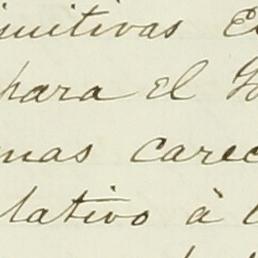 initivas E
para el
mas carec
lativo à